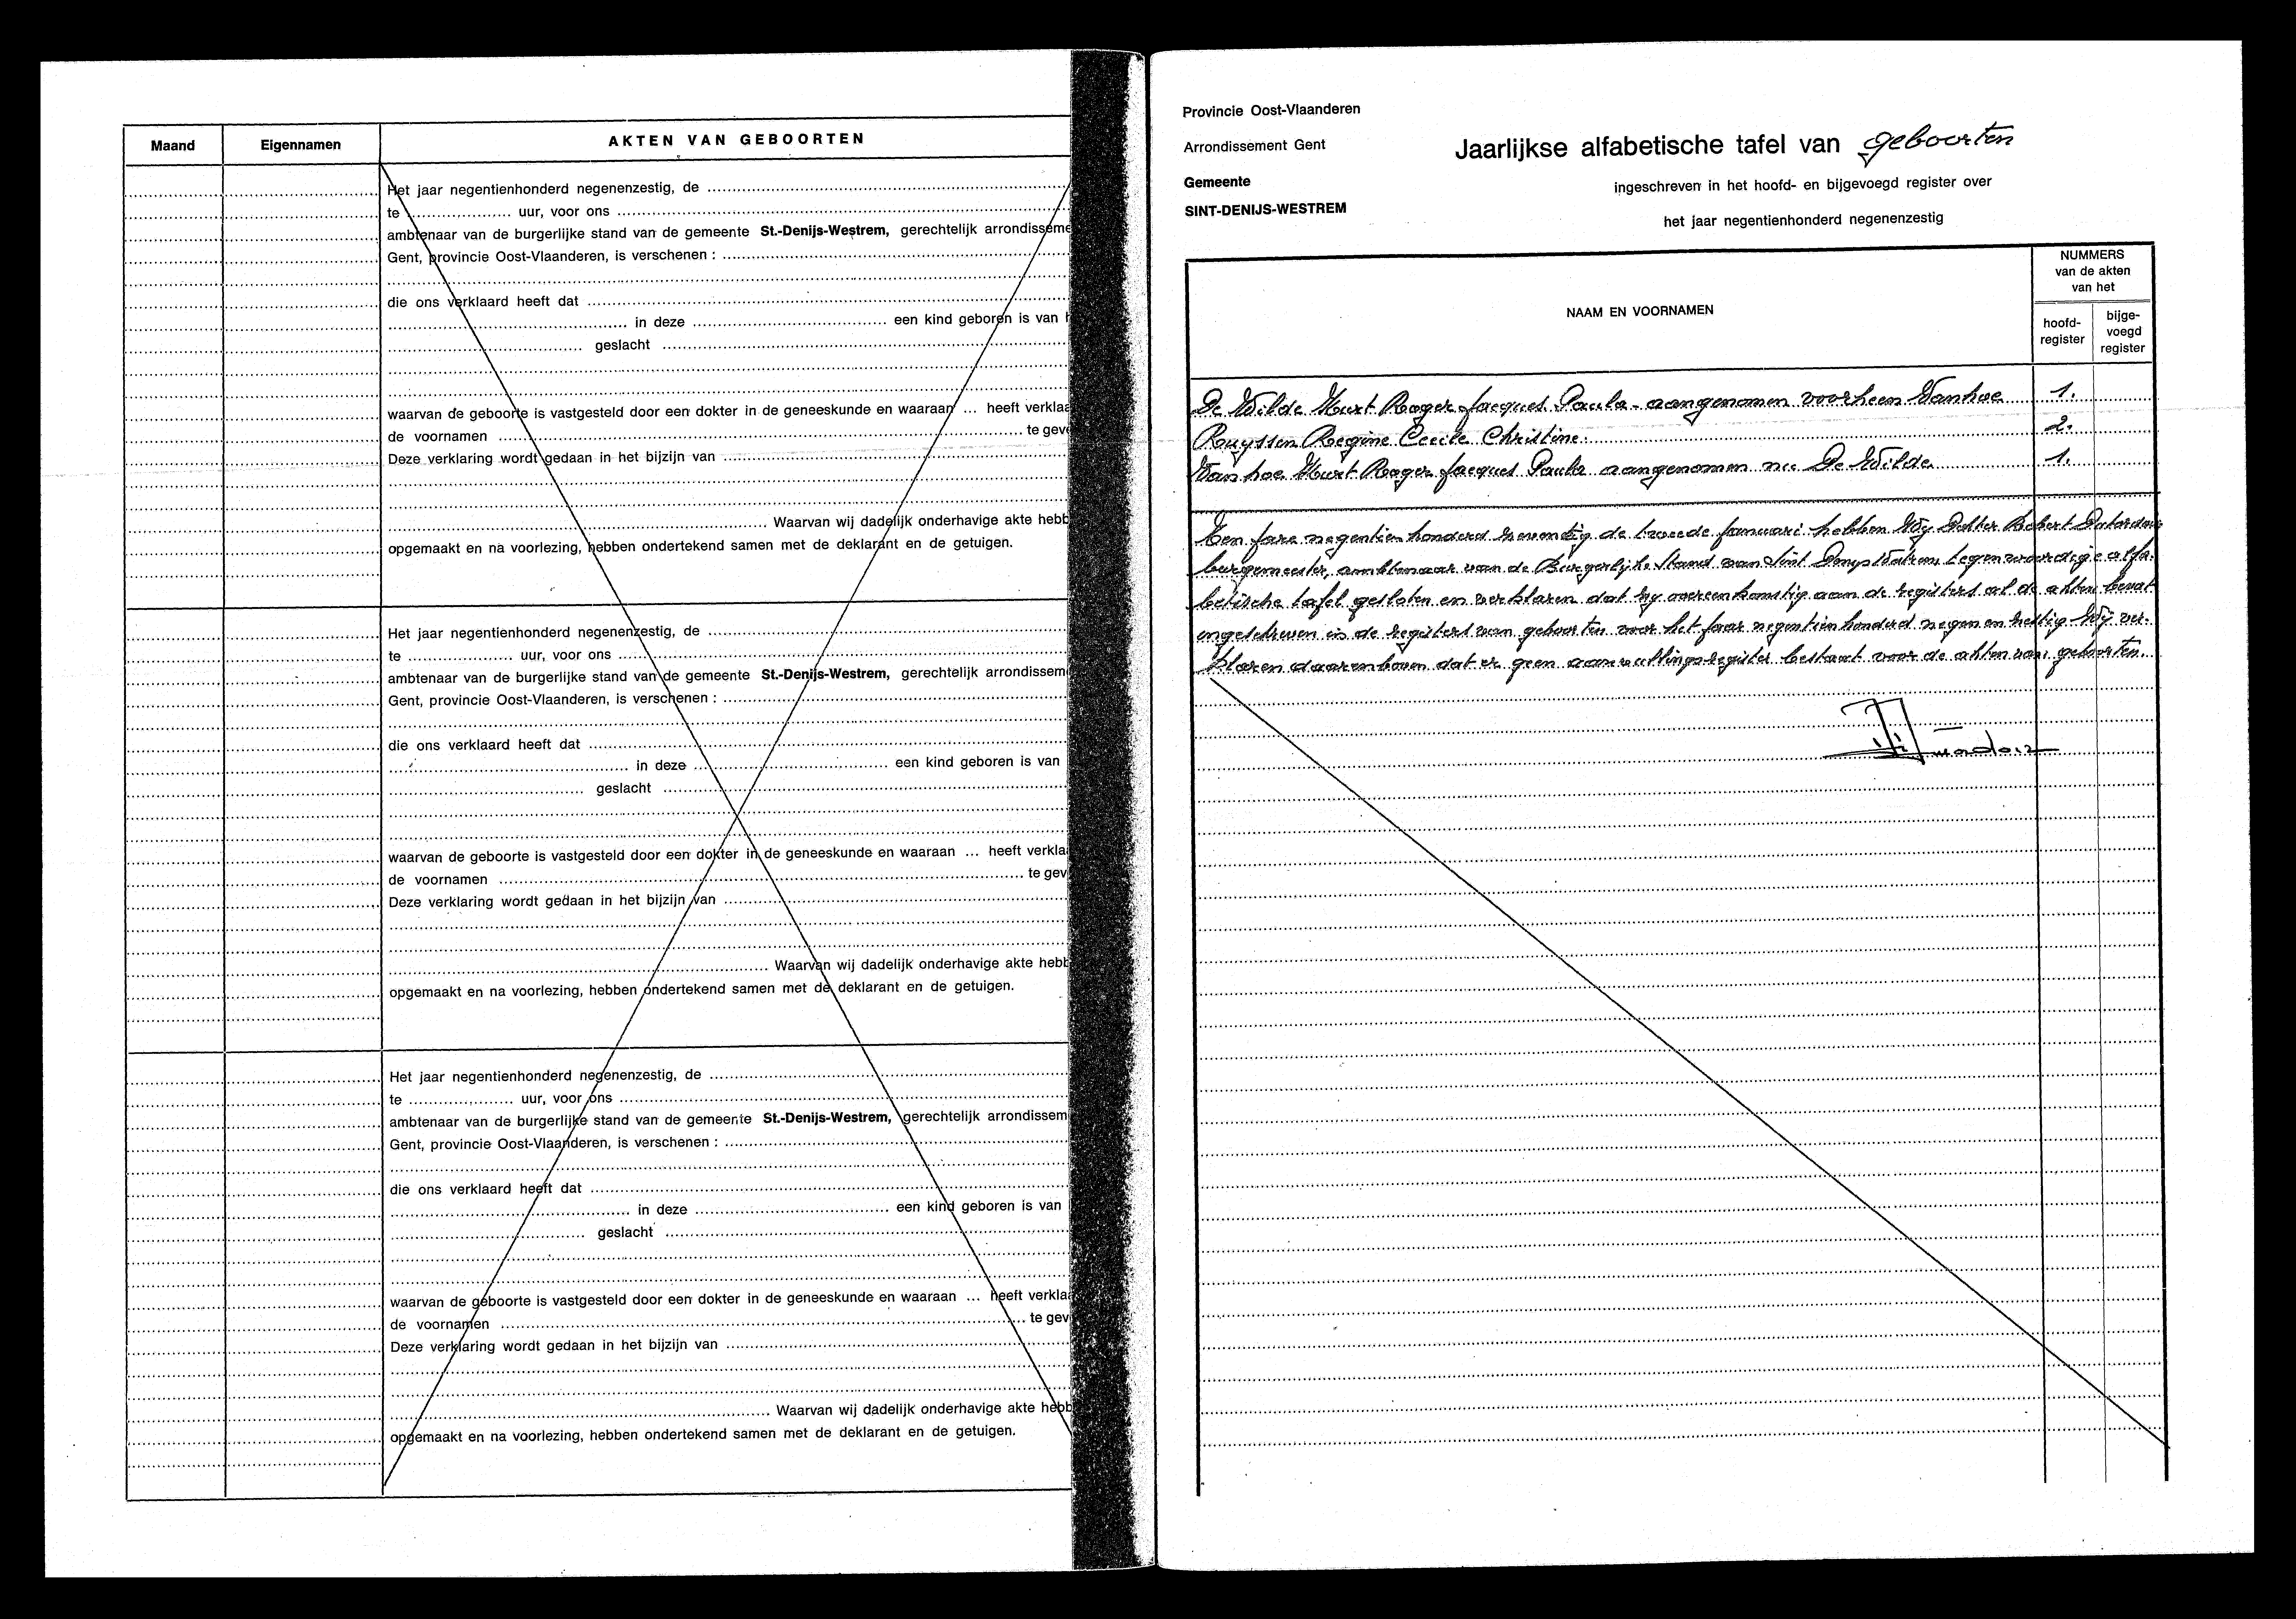 Maand Eigennamen AKTEN VAN GEBOORTEN
Het jaar negentienhonderd negenenzestig, de
te uur, voor ons
ambtenaar van de burgerlijke stand van de gemeente St.-Denijs-Westrem, gerechtelijk arrondisseme
Gent, provincie Oost-Vlaanderen, is verschenen :
die ons verklaard heeft dat
in deze een kind geboren is van h
geslacht
waarvan de geboorte is vastgesteld door een dokter in de geneeskunde en waaraan ... heeft verklaa
de voornamen te geve
Deze verklaring wordt gedaan in het bijzijn van
Waarvan wij dadelijk onderhavige akte hebb
opgemaakt en na voorlezing, hebben ondertekend samen met de deklarant en de getuigen.
Het jaar negentienhonderd negenenzestig, de
te uur, voor ons
ambtenaar van de burgerlijke stand van de gemeente St.-Denijs-Westrem, gerechtelijk arrondissem
Gent, provincie Oost-Vlaanderen, is verschenen :
die ons verklaard heeft dat
in deze een kind geboren is van
geslacht
waarvan de geboorte is vastgesteld door een dokter in de geneeskunde en waaraan ... heeft verkla
de voornamen te gev
Deze verklaring wordt gedaan in het bijzijn van
Waarvan wij dadelijk onderhavige akte hebb
opgemaakt en na voorlezing, hebben ondertekend samen met de deklarant en de getuigen.
Het jaar negentienhonderd negenenzestig, de
te uur, voor ons
ambtenaar van de burgerlijke stand van de gemeente St.-Denijs-Westrem, gerechtelijk arrondissem
Gent, provincie Oost-Vlaanderen, is verschenen :
die ons verklaard heeft dat
in deze een kind geboren is van
geslacht
waarvan de geboorte is vastgesteld door een dokter in de geneeskunde en waaraan ... heeft verklaa
de voornamen te gev
Deze verklaring wordt gedaan in het bijzijn van
Waarvan wij dadelijk onderhavige akte hebb
opgemaakt en na voorlezing, hebben ondertekend samen met de deklarant en de getuigen.
Provincie Oost-Vlaanderen
Arrondissement Gent
Gemeente
SINT-DENIJS-WESTREM
Jaarlijkse alfabetische tafel van geboorten
ingeschreven in het hoofd- en bijgevoegd register over
het jaar negentienhonderd negenenzestig
NAAM EN VOORNAMEN
NUMMERS
van de akten
van het
hoofd-
register
bijge-
voegd
register
De Wilde Kurt Roger Jacques Paula - aangenomen voorheen Vanhoe 1.
Ruyssen Regine Cecile Christine. 2.
Van hoe Kurt Roger Jacques Paula aangenomen nu De Wilde 1.
Een jare negentien honderd zeventig de tweede januari hebben Wij Robert
burgemeester, ambtenaar van de Burgerlijke Stand van Sint Denys Westrem tegenwoordige alfa-
betische tafel gesloten en verklaren dat zy overeenkomstig aan de registers al de akten bevat
ingeschreven in de registers van geboorten voor het jaar negentien honderd negen en zestig Wij ver-
klaren daarenboven dat er geen aanvullingsregister bestaat voor de akten van geboorten.